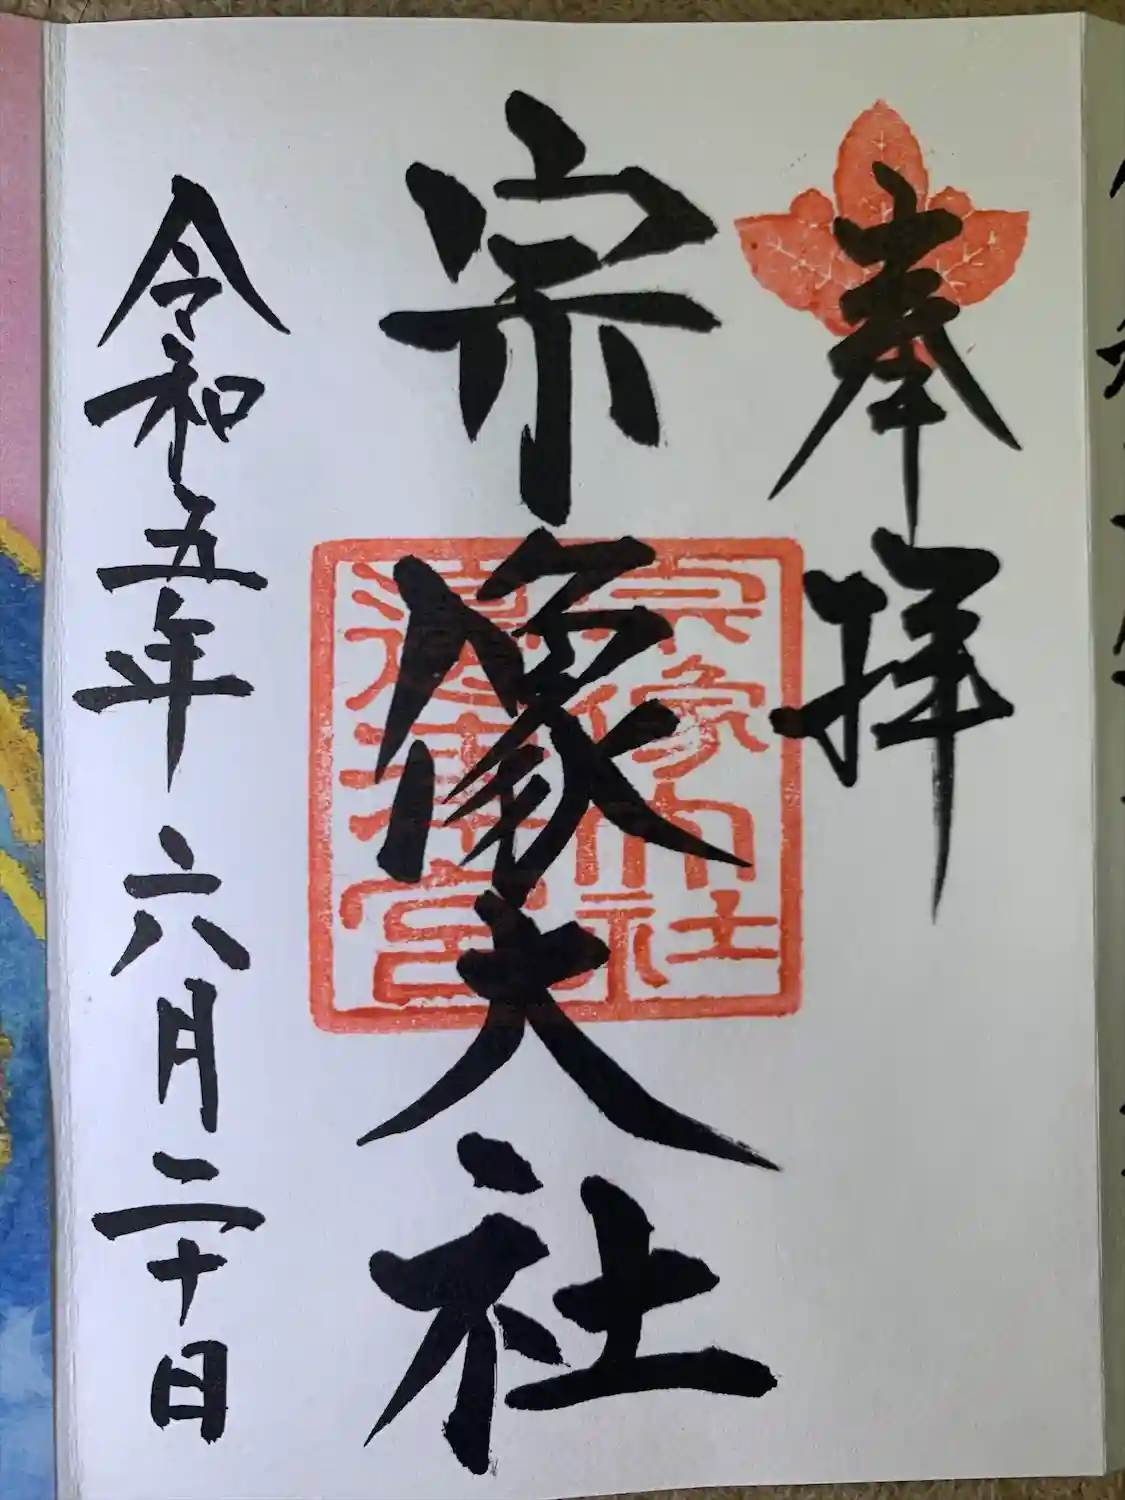 奉拝
宗像大社
宗像大社
邉津宮
令和五年 六月二十日